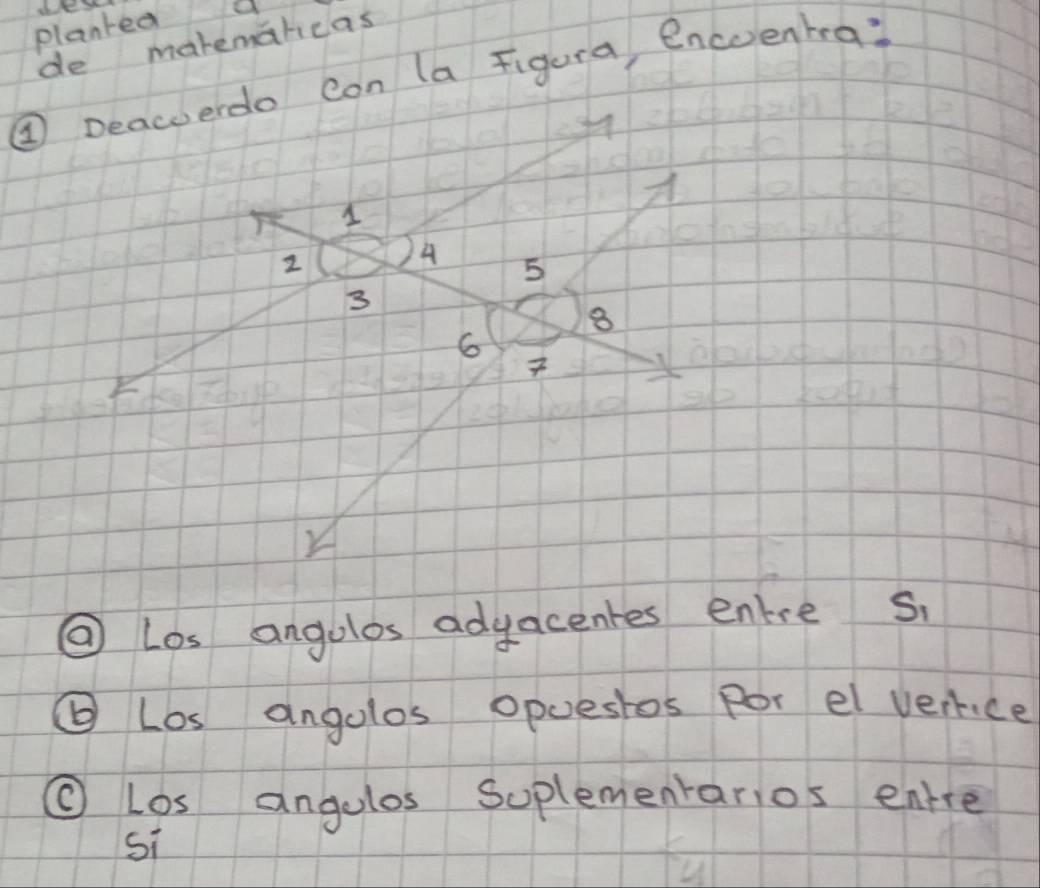 Plantea a
de matemáticas
① Deacuerdo con la Figura, encuentra:
1
2
4
3
5
8
6
7
ⓐ Los angulos adyacentes entre Si
ⓑ Los angulos opuestos Por el vertice
ⓒ Los angulos Suplementarios entre
Si